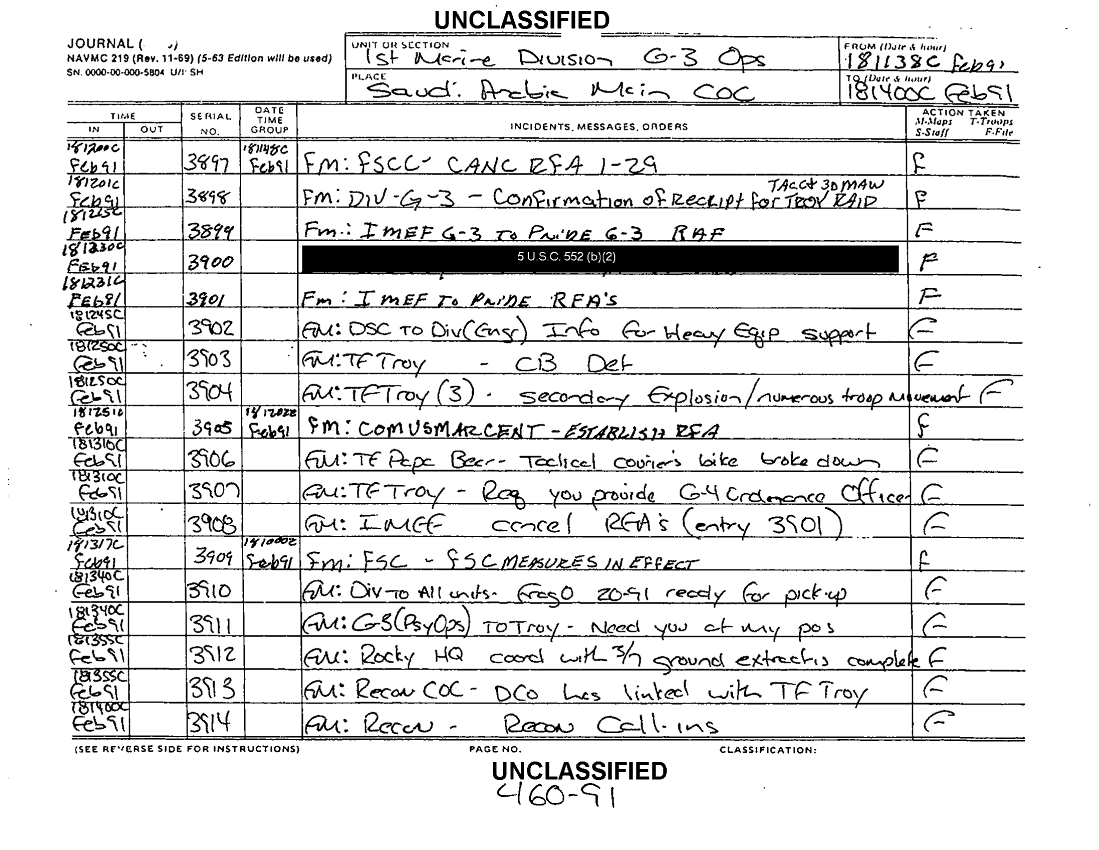 UNCLASSIFIED
JOURNAL (
NAVMC 219 (Rev. 11-69) (5-63 Edition will be used)
SN. 0000-00-000-5804 U/I SH
UNIT OR SECTION
1st Marine Division G-3 Ops
FROM (Date & hour)
181138C Feb91
PLACE
Saudi Arabia Main COC
TO (Date & hour)
181400C Feb91
TIME
IN OUT
SERIAL NO.
DATE TIME GROUP
INCIDENTS, MESSAGES, ORDERS
ACTION TAKEN
M-Maps T-Troops
S-Staff F-File
181200C Feb91 3897 181148C Feb91 Fm: FSCC- CANC RFA 1-29 F
181201C Feb91 3898 Fm: DIV-G-3 - Confirmation of Receipt for TROY RAID TACC+ 3D MAW F
181225C Feb91 3899 Fm: I MEF G-3 TO PRIDE G-3 RAF F
181230C Feb91 3900 5 U.S.C. 552 (b)(2) F
181231C Feb91 3901 Fm: I MEF TO PRIDE RFA's F
181245C Feb91 3902 FM: DSC TO Div(Engr) Info for Heavy Eqip support F
181250C Feb91 3903 FM: TF Troy - CB Det F
181250C Feb91 3904 FM: TF Troy (3) - secondary Explosion/numerous troop movement F
181251C Feb91 3905 181202Z Feb91 Fm: COMUSMARCENT - ESTABLISH RFA F
181310C Feb91 3906 FM: TF Papa Bear- Tactical courier's bike broke down F
181310C Feb91 3907 FM: TF Troy - Req you provide G-4 Ordnance Officer F
181310C Feb91 3908 FM: IMEF cancel RFA's (entry 3901) F
181317C Feb91 3909 181000Z Feb91 Fm: FSC - FSC MEASURES IN EFFECT F
181340C Feb91 3910 FM: Div to All units- FragO 20-91 ready for pick-up F
181340C Feb91 3911 FM: G-3(PsyOps) TO Troy - Need you at my pos F
181355C Feb91 3912 FM: Rocky HQ coord with 3/7 ground extract is complete F
181355C Feb91 3913 FM: Recon COC - DCo has linked with TF Troy F
181400C Feb91 3914 FM: Recon - Recon Call-ins F
(SEE REVERSE SIDE FOR INSTRUCTIONS) PAGE NO. CLASSIFICATION:
UNCLASSIFIED
460-91